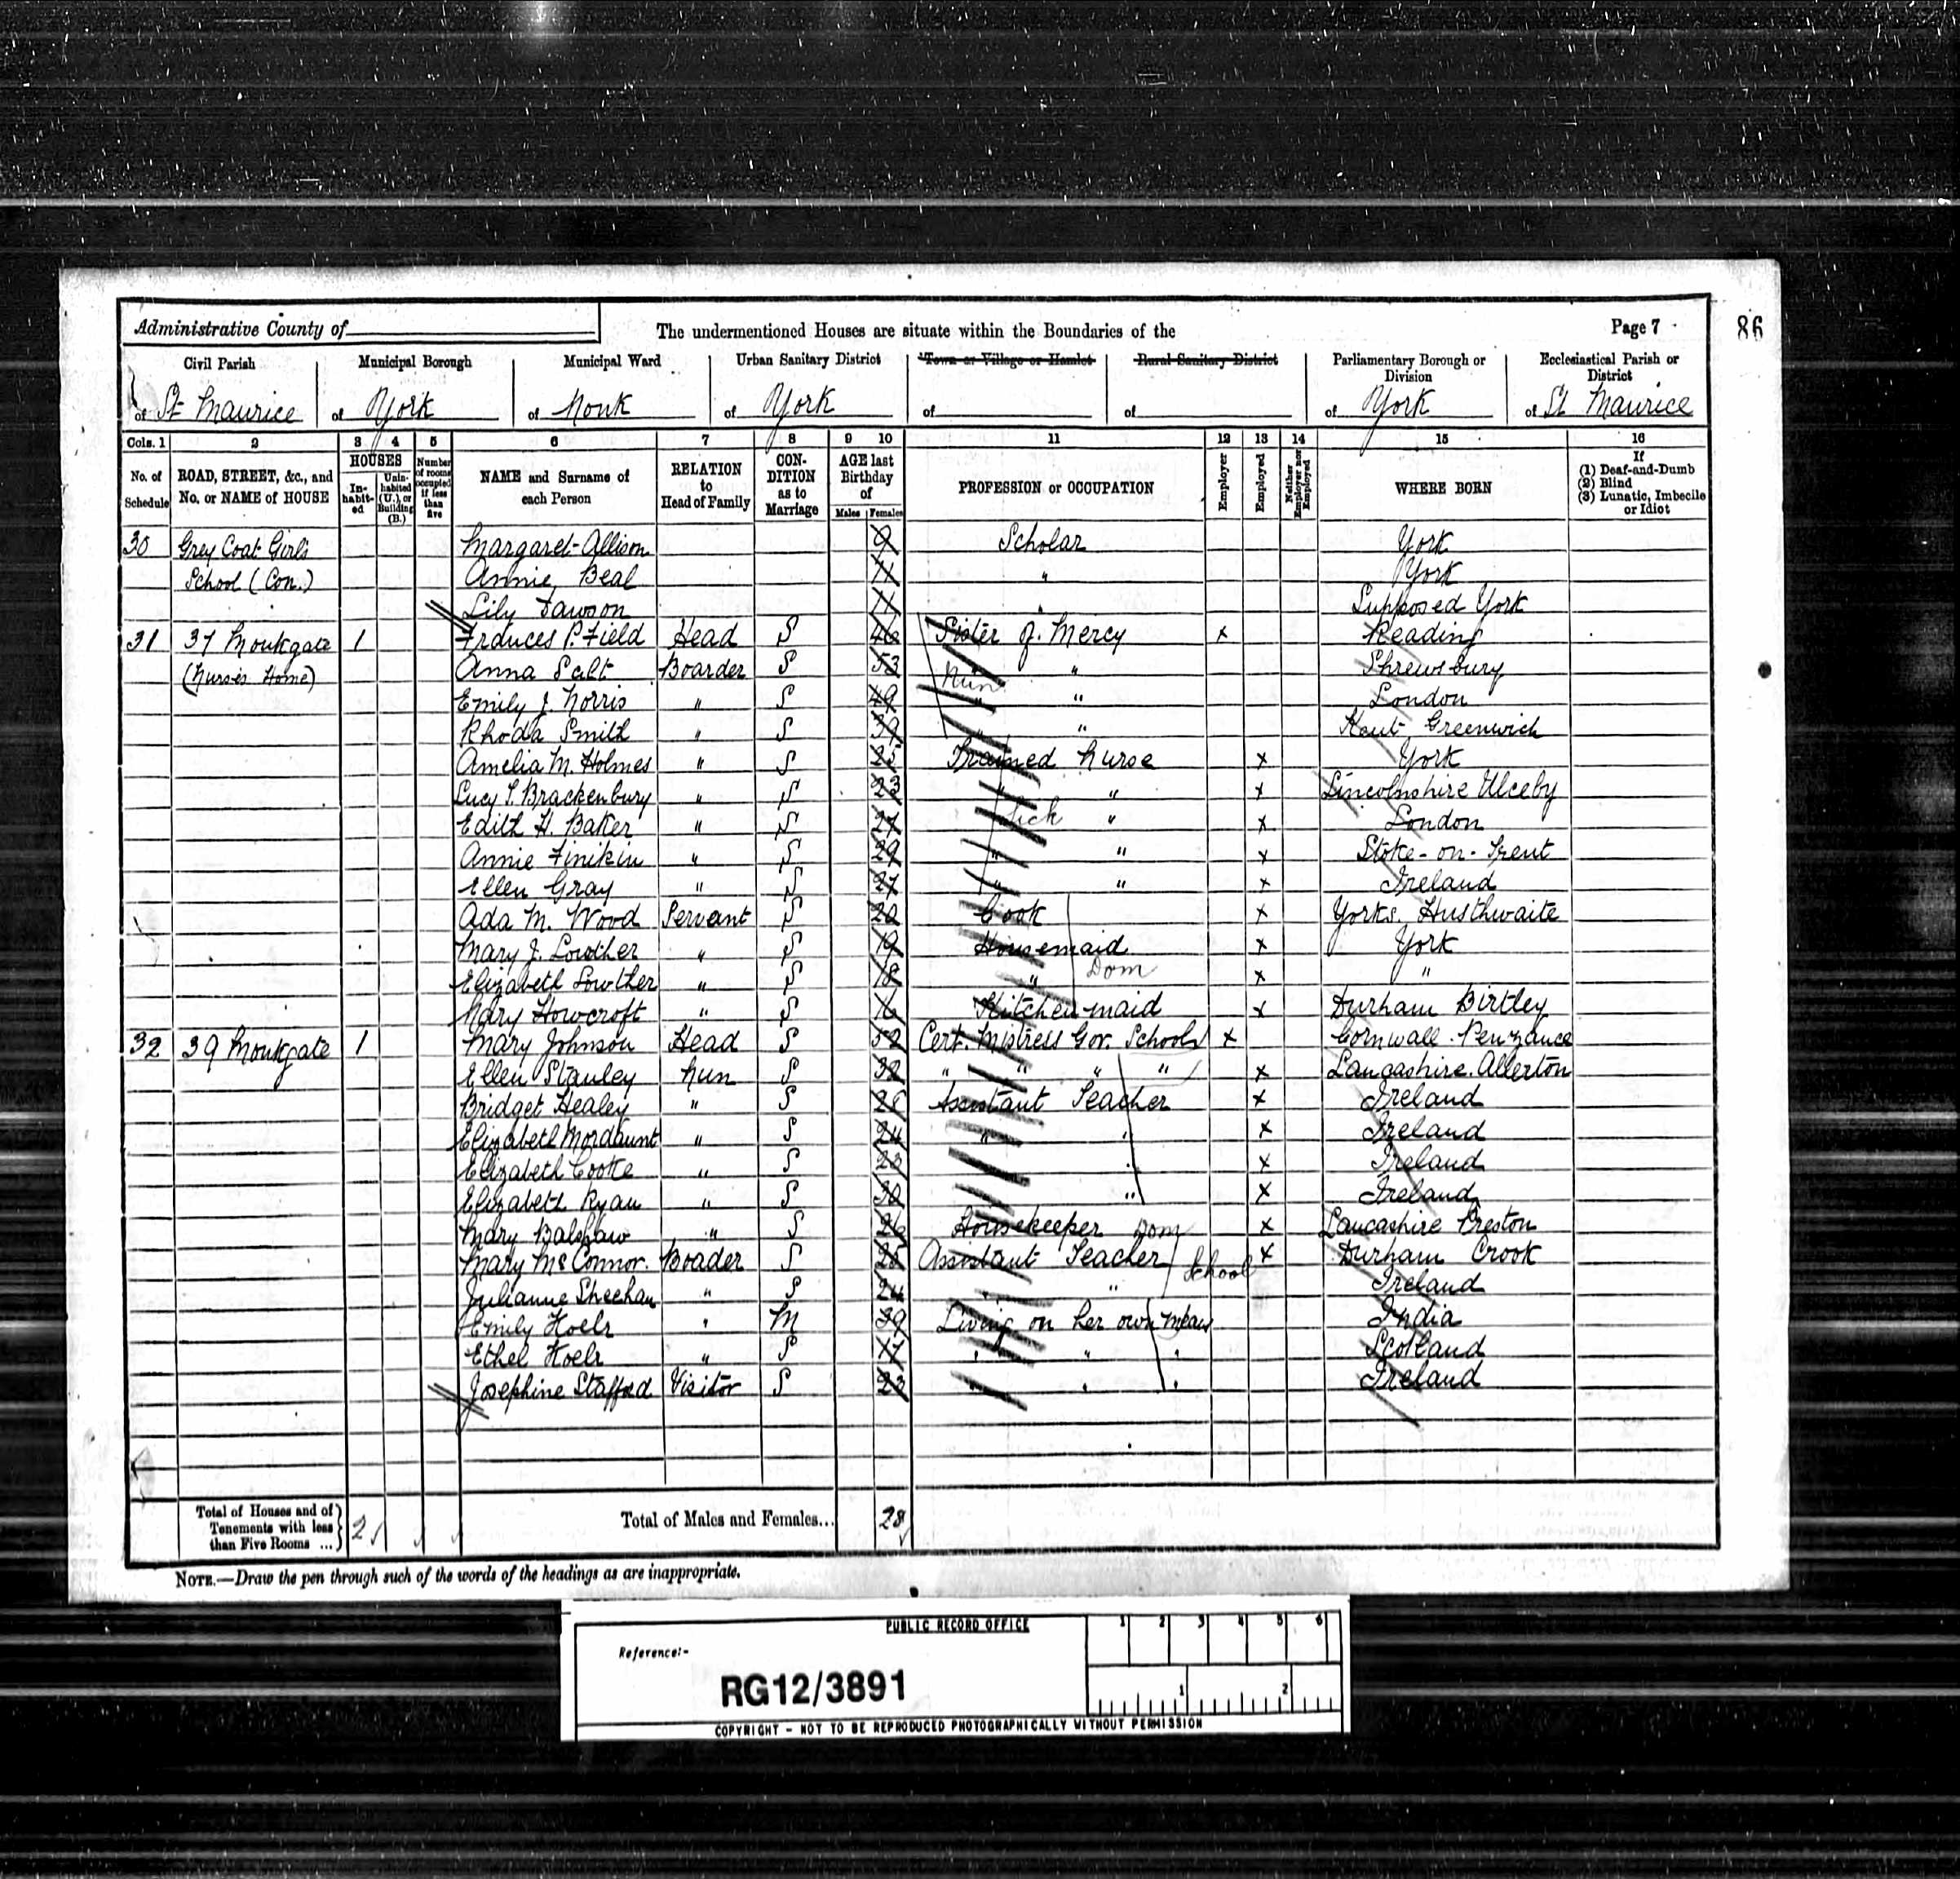 Administrative County of
The undermentioned Houses are situate within the Boundaries of the
Page 7
86
Civil Parish
Municipal Borough
Municipal Ward
Urban Sanitary District
Town or Village or Hamlet
Rural Sanitary District
Parliamentary Borough or Division
Ecclesiastical Parish or District
of St Maurice
of York
of Monk
of York
of
of
of York
of St Maurice
Cols. 1 2 3 4 5 6 7 8 9 10 11 12 13 14 15 16
No. of Schedule
ROAD, STREET, &c., and No. or NAME of HOUSE
HOUSES
In-habit-ed
Unin-habited (U.), or Building (B.)
Number of rooms occupied if less than five
NAME and Surname of each Person
RELATION to Head of Family
CON-DITION as to Marriage
AGE last Birthday of
Males Females
PROFESSION or OCCUPATION
Employer
Employed
Neither Employer nor Employed
WHERE BORN
If
(1) Deaf-and-Dumb
(2) Blind
(3) Lunatic, Imbecile or Idiot
30 Grey Coat Girls Margaret Allison 9 Scholar York
School (Con.) Annie Beal 11 " York
Lily Dawson 11 " Supposed York
31 37 Monkgate 1 Frances P. Field Head S 46 Sister of Mercy x Reading
(Nurses Home) Anna Salt Boarder S 53 Nun " Shrewsbury
Emily J. Norris " S 49 " " London
Rhoda Smith " S 39 " " Kent Greenwich
Amelia M. Holmes " S 25 Trained Nurse x York
Lucy S. Brackenbury " S 23 " " x Lincolnshire Ulceby
Edith H. Baker " S Sick " x London
Annie Finikin " S 29 " " x Stoke-on-Trent
Ellen Gray " S 27 " " x Ireland
Ada M. Wood Servant S Cook x Yorks. Husthwaite
Mary J. Lowther " S 19 Housemaid x York
Elizabeth Lowther " S 18 " Dom x "
Mary Howcroft " S 16 Kitchenmaid x Durham Birtley
32 39 Monkgate 1 Mary Johnson Head S 52 Cert. Mistress Gov. Schools x Cornwall. Penzance
Ellen Stanley Nun S 32 " " " " x Lancashire. Allerton
Bridget Healey " S Assistant Teacher x Ireland
Elizabeth Mordaunt " S 24 " " x Ireland
Elizabeth Cooke " S 23 " x Ireland
Elizabeth Ryan " S 30 " x Ireland
Mary Balshaw " S 26 Housekeeper Dom x Lancashire Preston
Mary McConnor. Boader S Assistant Teacher School x Durham Crook
Julianne Sheehan " S 24 " " Ireland
Emily Hoelr " M 39 Living on her own means India
Ethel Hoelr " S 17 " " " Scotland
Josephine Stafford Visitor S " " " Ireland
Total of Houses and of Tenements with less than Five Rooms ... 2
Total of Males and Females... 28
NOTE.—Draw the pen through such of the words of the headings as are inappropriate.
PUBLIC RECORD OFFICE
1 2 3 4 5 6
Reference:-
RG12/3891
1 2
COPYRIGHT - NOT TO BE REPRODUCED PHOTOGRAPHICALLY WITHOUT PERMISSION